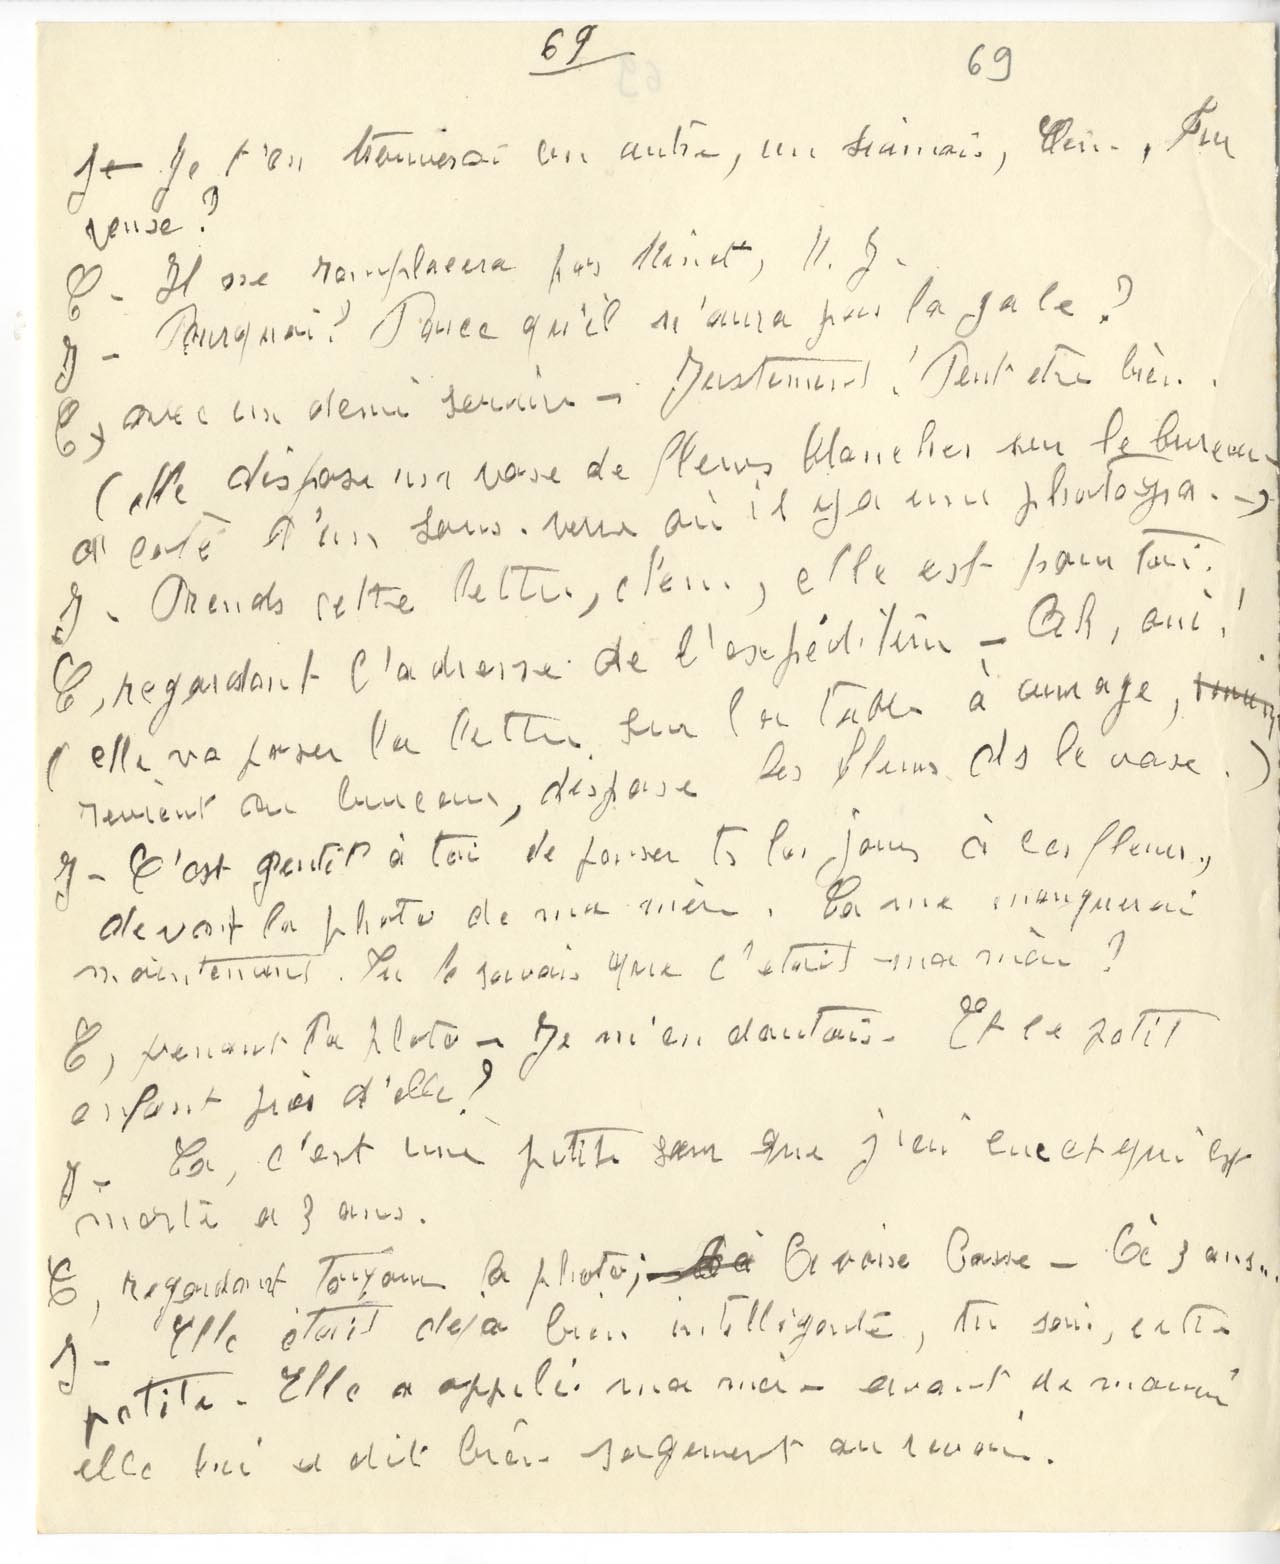 69 69
J – Je t'en trouverai un autre, un siamois, Clém. Tu
veux?
C – Il ne remplacera pas Minet, M. J.
J – Pourquoi? Parce qu'il n'aura pas la gale?
C, avec un demi sourire – Justement! Peut etre bien.
(elle dispose un vase de fleurs blanches sur le bureau
à coté d'un sous-verre où il y a une photogra. –)
J – Prends cette lettre, Clém., elle est pour toi.
C, regardant l'adresse de l'expéditeur – Ah, oui!
(elle va poser la lettre sur la table à ouvrage,
revient au bureau, dispose les fleurs ds le vase.)
J – C'est gentil à toi de penser ts les jours à ces fleurs,
devant la photo de ma mère. Ca me manquerai
maintenant. Tu le savais que c'etait ma mère?
C, prenant la photo – Je m'en doutais. Et le petit
enfant près d'elle?
J – Ca, c'est une petite sœur que j'ai eue et qui est
morte a 3 ans.
C, regardant toujours la photo, à voix basse – A 3 ans...
J – Elle était dejà bien intelligente, tu sais, cette
petite. Elle a appelé ma mère avant de mourir
elle lui a dit bien sagement au revoir.